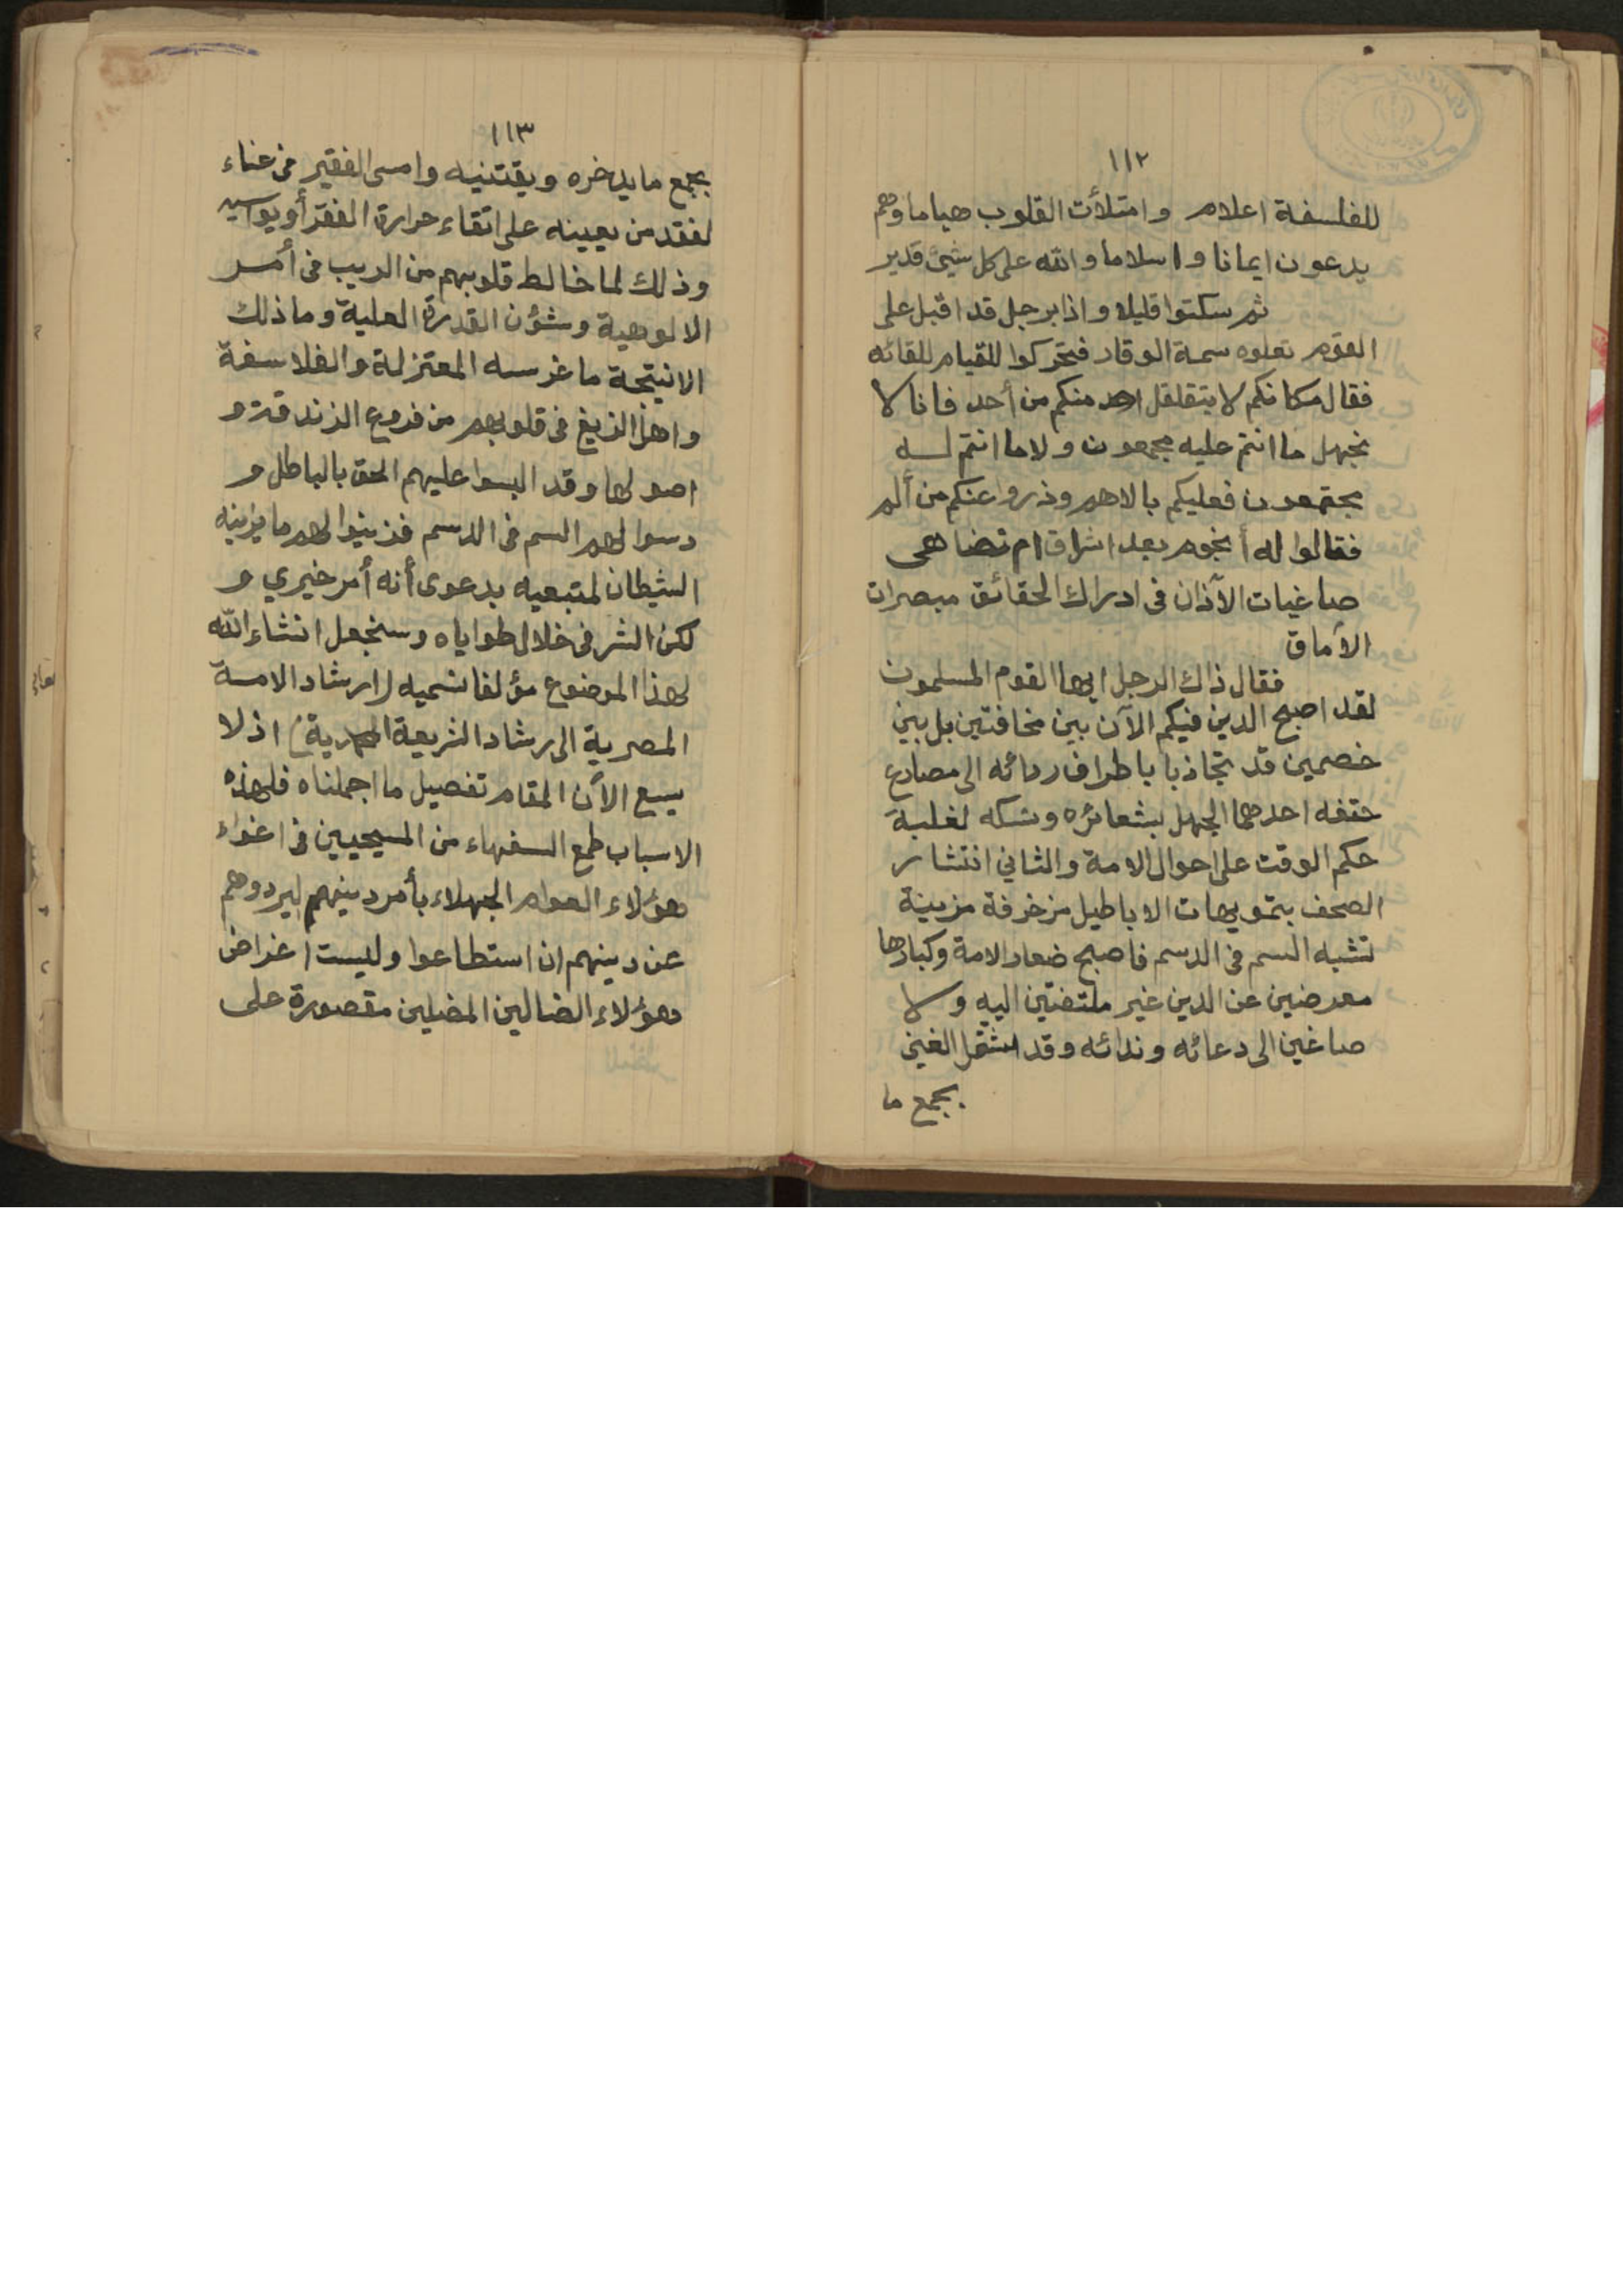 ١١٢
للفلسفة اعلام وامتلأت القلوب هياما وهم
يدعون ايمانا واسلاما والله على كل شيئ قدير
ثم سكتوا قليلا واذا برجل قد اقبل على
القوم تعلوه سمة الوقار فتحركوا للقيام للقائه
فقال مكانكم لا يتقلقل احد منكم من أحد فانا لا
نجهل ما انتم عليه مجمعون ولا ما انتم لـه
مجتمعون فعليكم بالاهم وذروا عنكم من ألم
فقالوا له أنجوم بعد اشراق ام تضاهى
صاغيات الآذان فى ادراك الحقائق مبصرات
الآماق
فقال ذاك الرجل ايها القوم المسلمون
لقد اصبح الدين فيكم الآن بين مخافتين بل بين
خصمين قد تجاذبا باطراف ردائه الى مصارع
حتفه احدهما الجهل بشعائره ونسكه لغلبة
حكم الوقت على احوال الامة والثاني انتشار
الصحف بتمويهات الاباطيل مزخرفة مزينة
تشبه السم فى الدسم فاصبح صغار الامة وكبارها
معرضين عن الدين غير ملتفتين اليه ولا
صاغين الى دعائه وندائه وقد اشتغل الغني
بجمع ما
١١٣
بجمع ما يدخره ويقتنيه وامسى الفقير فى عناء
لفقد من يعينه على اتقاء حرارة الفقر أو يواسيه
وذلك لما خالط قلوبهم من الريب فى أمـر
الالوهية وشؤن القدرة العلية وما ذلك
الا نتيجة ما غرسه المعتزلة والفلاسفة
واهل الزيغ فى قلوبهم من فروع الزندقة و
اصولها وقد البسوا عليهم الحق بالباطل و
دسوا لهم السم فى الدسم فزينوا لهم ما يزينه
الشيطان لمتبعيه بدعوى أنه أمر خيري و
لكن الشر فى خلال طواياه وسنجعل انشاء الله
لهذا الموضوع مؤلفا نسميه (ارشاد الامـة
المصرية الى رشاد الشريعة المحمدية) اذ لا
يسع الآن المقام تفصيل ما اجملناه فلهذه
الاسباب طمع السفهاء من المسيحيين فى اغواء
هؤلاء العوام الجهلاء بأمر دينهم ليردوهم
عن دينهم ان استطاعوا وليست اغراض
هؤلاء الضالين المضلين مقصورة على